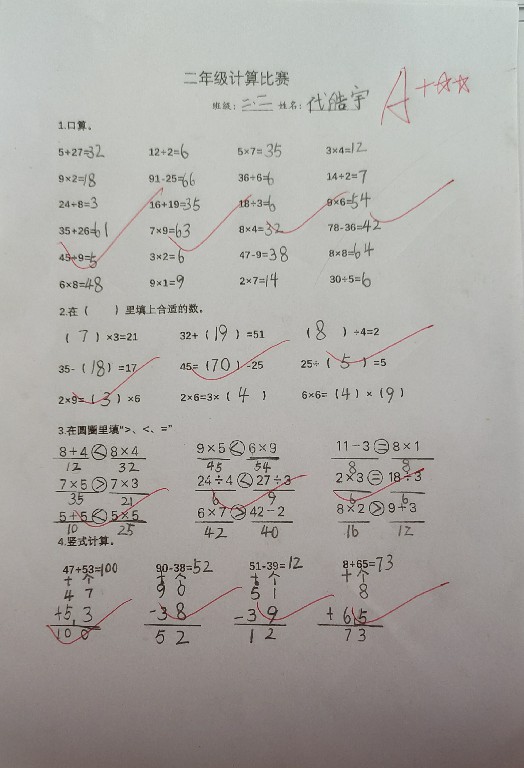 二年级计算比赛
班级：二·二 姓名：代皓宇
A+☆☆
1.口算。
5+27=32 12÷2=6 5×7=35 3×4=12
9×2=18 91-25=66 36÷6=6 14÷2=7
24÷8=3 16+19=35 18÷3=6 9×6=54
35+26=61 7×9=63 8×4=32 78-36=42
45÷9=5 3×2=6 47-9=38 8×8=64
6×8=48 9×1=9 2×7=14 30÷5=6
2.在（ ）里填上合适的数。
（7）×3=21 32+（19）=51 （8）÷4=2
35-（18）=17 45=（70）-25 25÷（5）=5
2×9=（3）×6 2×6=3×（4） 6×6=（4）×（9）
3.在圆圈里填“>、<、=”
8+4<8×4 9×5<6×9 11-3=8×1
12 32 45 54 8 8
7×5>7×3 24÷4<27÷3 2×3=18÷3
35 21 6 9 6 6
5+5<5×5 6×7>42-2 8×2>9+3
10 25 42 40 16 12
4.竖式计算。
47+53=100 90-38=52 51-39=12 8+65=73
十个 十个 十个 十个
47 90 51 8
+53 -38 -39 +65
100 52 12 73